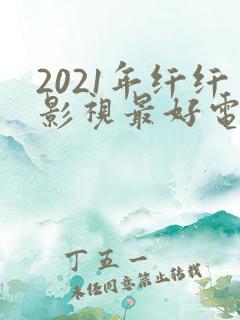 2021年纤纤
影视最好电
丁五一
未经同意禁止转载